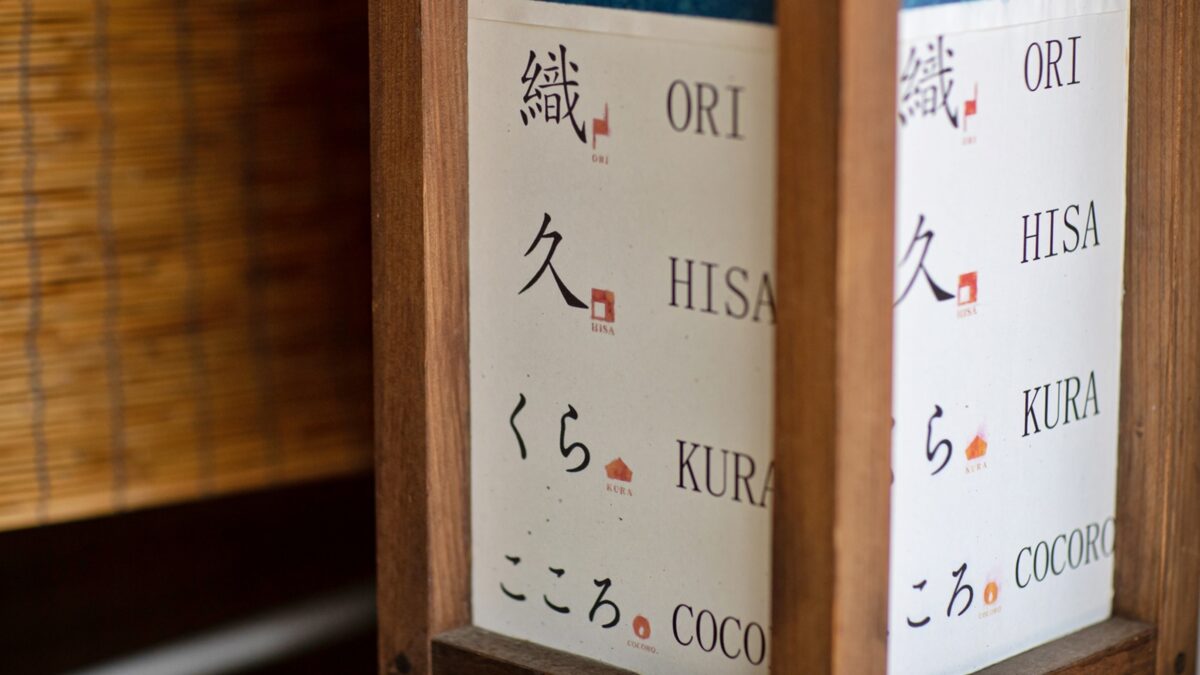 織 ORI
ORI
久 HISA
HISA
くら KURA
KURA
こころ COCO
COCORO.
織 ORI
ORI
久 HISA
HISA
ら KURA
KURA
ころ COCORO
COCORO